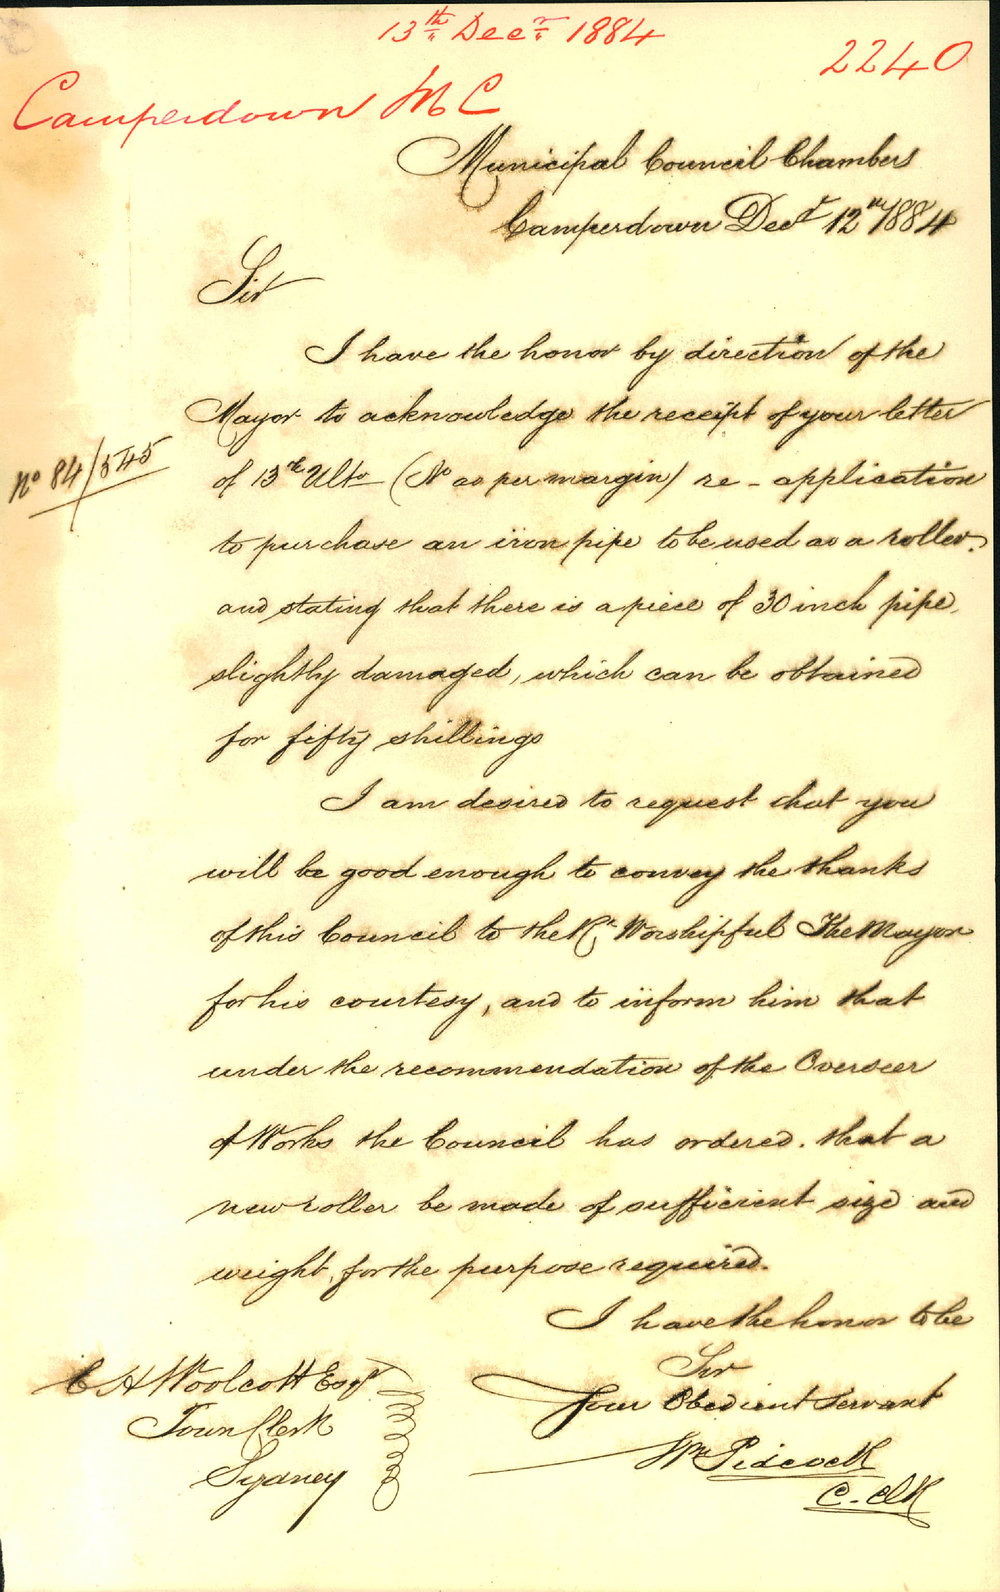 13th Decr 1884
2240
Camperdown MC
Municipal Council Chambers
Camperdown Decr 12th 1884
Sir
I have the honor by direction of the
Mayor to acknowledge the receipt of your letter
No 84/545
of 13th Ulto (No as per margin) re-application
to purchase an iron pipe to be used as a roller.
and stating that there is a piece of 30 inch pipe,
slightly damaged, which can be obtained
for fifty shillings
I am desired to request that you
will be good enough to convey the thanks
of this Council to the Rt. Worshipful The Mayor
for his courtesy, and to inform him that
under the recommendation of the Overseer
of Works the Council has ordered. that a
new roller be made of sufficient size and
weight, for the purpose required.
I have the honor to be
Sir
Your Obedient Servant
Wm Pidcock
C. Clk
C H Woolcott Esqr
Town Clerk
Sydney